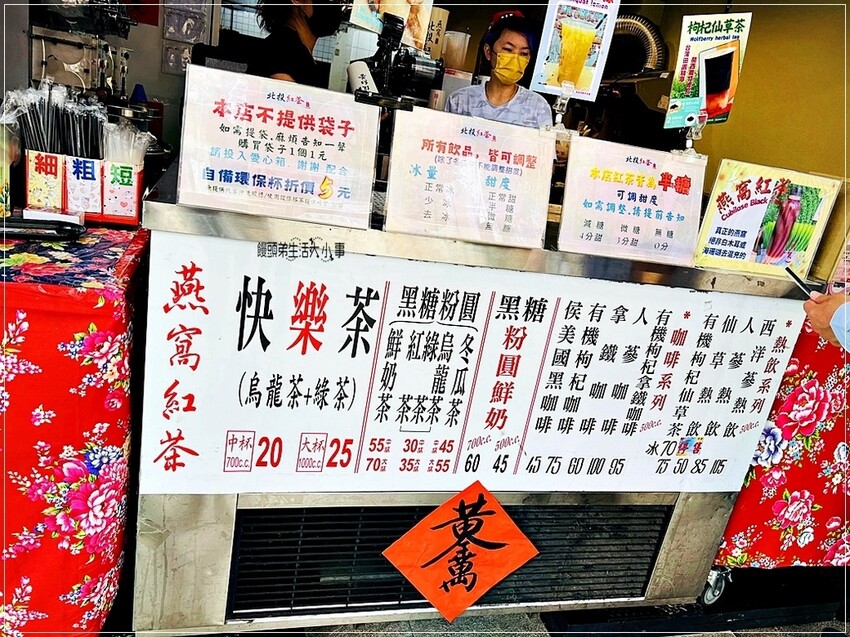 枸杞仙草茶
Wolfberry herbal tea
北投紅茶
本店不提供袋子
如需提袋.麻煩告知一聲
購買袋子1個1元
請投入愛心箱,謝謝配合
自備環保杯折價5元
北投紅茶
所有飲品，皆可調整
冰量
正常冰
少冰
去冰
甜度
正常甜
半糖
微糖
無糖
北投紅茶
本店紅茶皆為半糖
可調甜度
如需調整.請提前告知
減糖 微糖 無糖
4分甜 3分甜 0分
燕窩紅茶
Cubilose Black
真正的燕窩
絕非白木耳或
海珊瑚去混充的
細
粗
短
饅頭弟生活大小事
燕窩紅茶
快樂茶
(烏龍茶+綠茶)
中杯
700c.c.
20
大杯
1000c.c.
25
黑糖粉圓
鮮奶茶
紅茶
綠茶
烏龍茶
冬瓜茶
55 30 45
70大 35大 55大
黑糖粉圓鮮奶
700c.c. 500c.c.
60 45
侯美國黑咖啡
有機枸杞咖啡
拿鐵咖啡
人蔘咖啡
有機枸杞拿鐵咖啡
500c.c.
45 75 60 100 95
*咖啡系列
有機枸杞仙草茶
冰70
75
有機枸杞熱飲
仙草熱飲
人蔘熱飲
西洋蔘
500c.c.
50 85 105
*熱飲系列
黃金萬